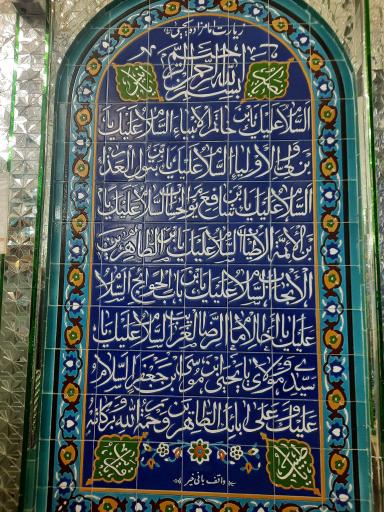 زیارت امامزاده یحیی
بسم الله الرحمن الرحیم
السلام علیک یابن خاتم الانبیاء السلام علیک یا
بن ولی الاولیاء السلام علیک یابن بتول العذراء
السلام علیک یابن شافع یوم الجزاء السلام علیک یا
بن الائمة الاطیاب السلام علیک یابن الطاهرین
الانجاب السلام علیک یابن باب الحوائج السلام
علیک یا اخ الامام الرضا الغریب السلام علیک یا
سیدی و مولای یا یحیی ابن موسی ابن جعفر السلام
علیک و علی ابائک الطاهرین و رحمة الله و برکاته
واقف بانی خیر